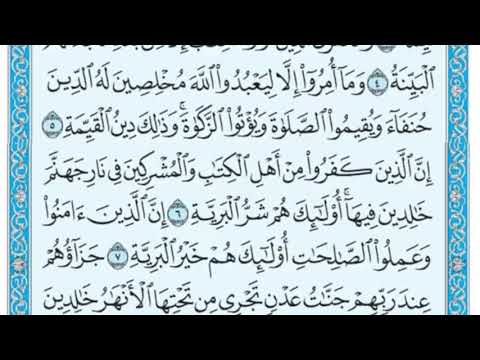 ٱلْبَيِّنَةُ ٤ وَمَآ أُمِرُوٓا۟ إِلَّا لِيَعْبُدُوا۟ ٱللَّهَ مُخْلِصِينَ لَهُ ٱلدِّينَ
حُنَفَآءَ وَيُقِيمُوا۟ ٱلصَّلَوٰةَ وَيُؤْتُوا۟ ٱلزَّكَوٰةَ ۚ وَذَٰلِكَ دِينُ ٱلْقَيِّمَةِ ٥
إِنَّ ٱلَّذِينَ كَفَرُوا۟ مِنْ أَهْلِ ٱلْكِتَٰبِ وَٱلْمُشْرِكِينَ فِى نَارِ جَهَنَّمَ
خَٰلِدِينَ فِيهَآ ۚ أُو۟لَٰٓئِكَ هُمْ شَرُّ ٱلْبَرِيَّةِ ٦ إِنَّ ٱلَّذِينَ ءَامَنُوا۟
وَعَمِلُوا۟ ٱلصَّٰلِحَٰتِ أُو۟لَٰٓئِكَ هُمْ خَيْرُ ٱلْبَرِيَّةِ ٧ جَزَآؤُهُمْ
عِندَ رَبِّهِمْ جَنَّٰتُ عَدْنٍ تَجْرِى مِن تَحْتِهَا ٱلْأَنْهَٰرُ خَٰلِدِينَ